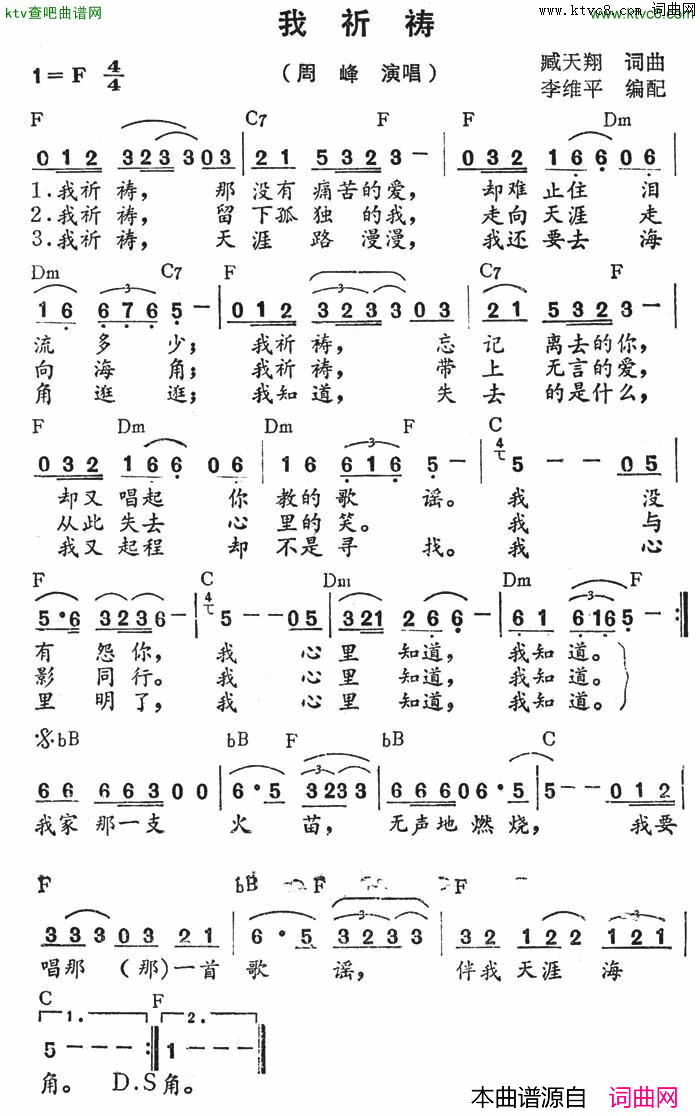 ktv查吧曲谱网
www.ktvc8.com 词曲网
www.ktvc8.com
我祈祷
1=F 4/4
(周 峰 演唱)
臧天翔 词曲
李维平 编配
F C7 F F Dm
0 1 2 3 2 3 3 0 3 | 2 1 5 3 2 3 — | 0 3 2 1 6 6 0 6 |
1.我祈祷， 那没有痛苦的爱， 却难止住泪
2.我祈祷， 留下孤独的我， 走向天涯走
3.我祈祷， 天涯路漫漫， 我还要去海
Dm C7 F C7 F
1 6 6 7 6 5 — | 0 1 2 3 2 3 3 0 3 | 2 1 5 3 2 3 — |
流多少； 我祈祷， 忘记离去的你，
向海角； 我祈祷， 带上无言的爱，
角逛逛； 我知道， 失去的是什么，
F Dm Dm F C
0 3 2 1 6 6 0 6 | 1 6 6 1 6 5 — | 5 — 0 5 |
却又唱起你教的歌谣。 我 没
从此失去心里的笑。 我 与
我又起程却不是寻找。 我 心
F C Dm Dm F
5·6 3 2 3 6 — | 5 — 0 5 | 3 2 1 2 6 6 — | 6 1 6 1 6 5 — :||
有怨你， 我 心里知道， 我知道。
影同行。 我 心里知道， 我知道。
里明了， 我 心里知道， 我知道。
bB bB F bB C
6 6 6 6 3 0 0 | 6·5 3 2 3 3 | 6 6 6 0 6·5 | 5 — — 0 1 2 |
我家那一支 火苗， 无声地燃烧， 我要
F bB F F
3 3 3 0 3 2 1 | 6·5 3 2 3 3 | 3 2 1 2 2 1 2 1 |
唱那(那)一首 歌谣， 伴我天涯海
C F
1. 2.
5 — — — :|| 1 — — — ||
角。 D.S 角。
本曲谱源自 词曲网